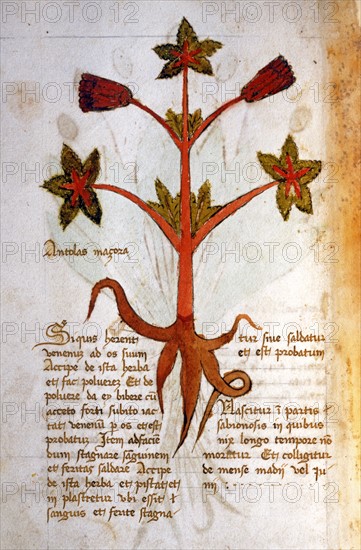 Antolas maçora
Si quis herent
venenuȝ ad os suum
Accipe de ista herba
et fac pulvereȝ Et de
pulvere da ey bibere cū
acceto forti subito iac
tat venenū p os et est
probatuȝ Item ad facie
dum stagnare saguinem
et feritas saldare Accipe
de ista herba et pistat et
in plastretur ubi essit t
sanguis et ferite stagna
tur sive saldatur
et est probatum
Nascitur ī partis
sabionosis in quibus
nix longo tempore nō
moratur Et colligitur
de mense madij vel iu
nij